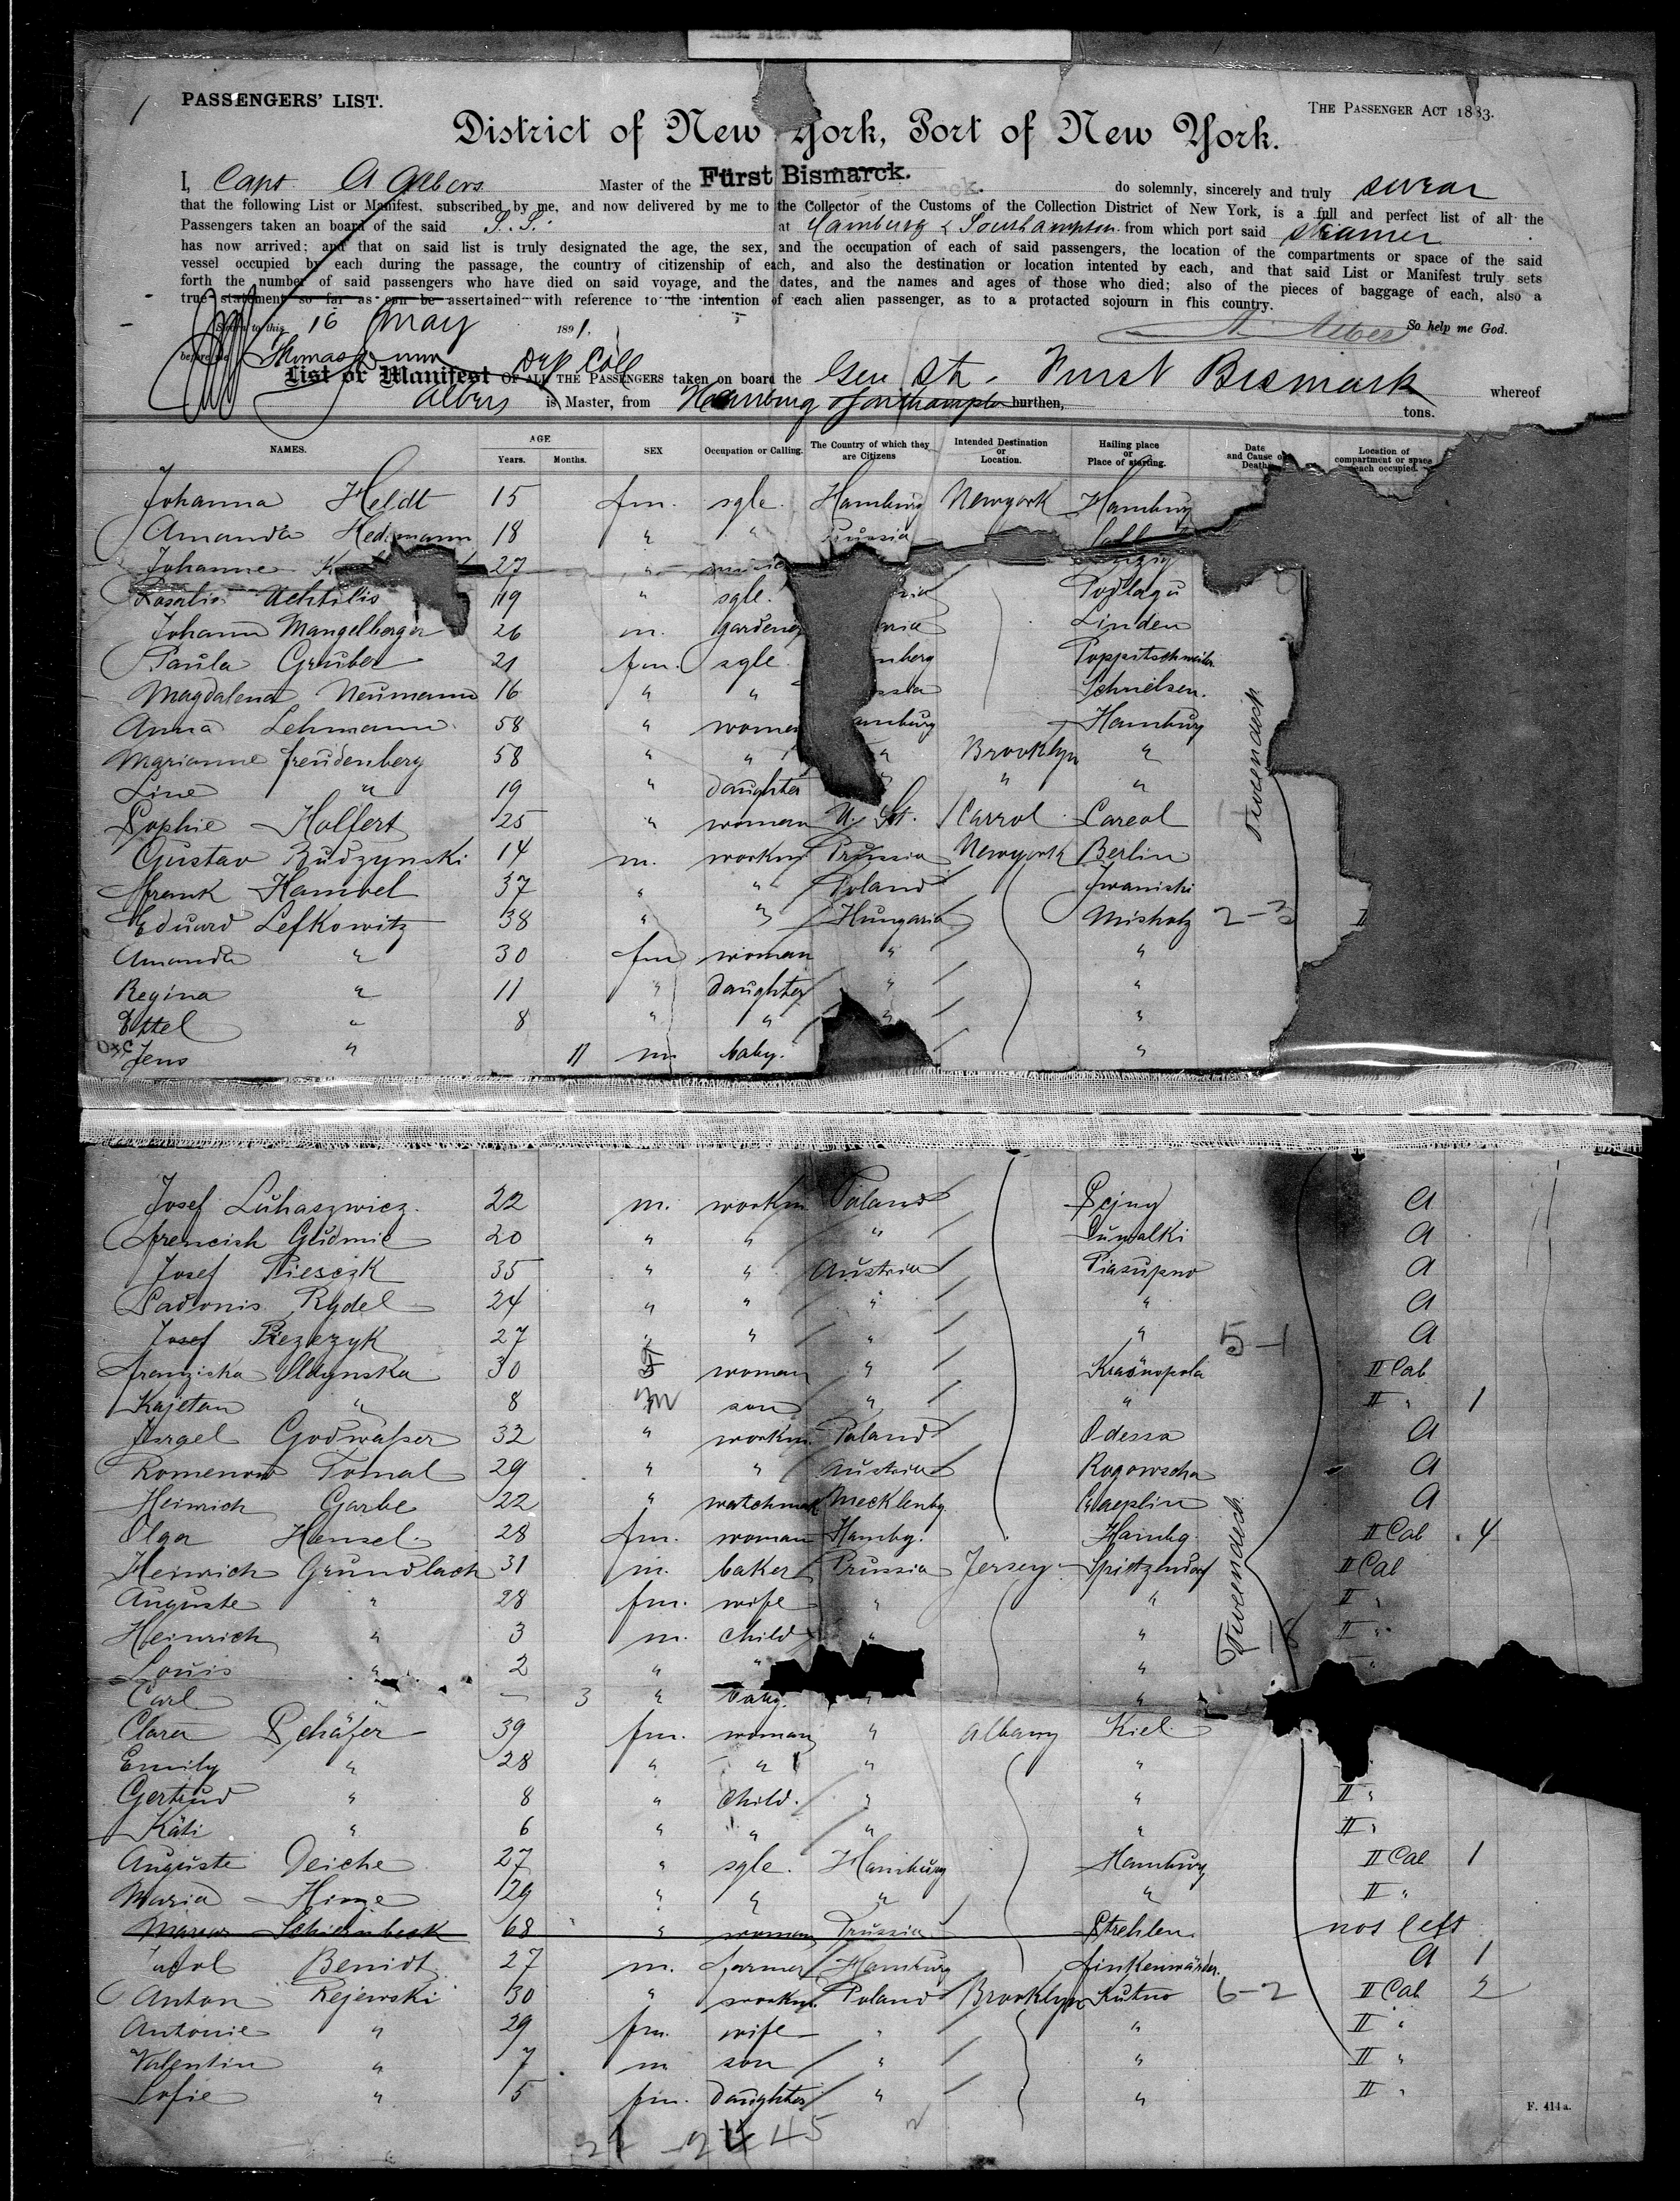 PASSENGERS' LIST.
THE PASSENGER ACT 1883.
District of New York, Port of New York.
I, Capt. A Albers Master of the Fürst Bismarck. do solemnly, sincerely and truly swear
that the following List or Manifest, subscribed by me, and now delivered by me to the Collector of the Customs of the Collection District of New York, is a full and perfect list of all the
Passengers taken an board of the said S. S. at Hamburg & Southampton from which port said steamer
has now arrived; and that on said list is truly designated the age, the sex, and the occupation of each of said passengers, the location of the compartments or space of the said
vessel occupied by each during the passage, the country of citizenship of each, and also the destination or location intented by each, and that said List or Manifest truly sets
forth the number of said passengers who have died on said voyage, and the dates, and the names and ages of those who died; also of the pieces of baggage of each, also a
true statement so far as can be assertained with reference to the intention of each alien passenger, as to a protacted sojourn in fhis country.
Sworn to this 16 May 1891. A. Albers So help me God.
before me Thomas Dunn Dep Coll
List or Manifest OF ALL THE PASSENGERS taken on board the Ger Str. Furst Bismark whereof
Albers is Master, from Hamburg Southampton burthen, tons.
NAMES. AGE Years. Months. SEX Occupation or Calling. The Country of which they are Citizens Intended Destination or Location. Hailing place or Place of starting. Date and Cause of Death Location of compartment or space each occupied.
Johanna Heldt 15 fm. sgle. Hamburg Newyork Hamburg
Amanda 18 " " Prussia
Johanne 27 "
19 " sgle.
Johann Mangelberger 26 m. Gardener Linden
Paula Gruber 21 fm. sgle.
Magdalena Neumann 16 " " Schnelsen.
Anna Lehmann 58 " woman Hamburg
Marianne Freudenberg 58 " " " Brooklyn "
Line " 19 " daughter " " "
Sophie Holfert 25 " woman U. St. Carrol Careol
Gustav Budzynski 14 m. workm Prussia Newyork Berlin
Frank Hambel 37 " " Poland Iwaniski
Eduard Lefkowitz 38 " " Hungaria Miskolz 2-3 II
Amanda " 30 fm woman " "
Regina " 11 " daughter " "
Ettel " 8 " " " "
Jens " 11 m baby. "
Tweendeck
Josef Luhaszwicz. 22 m. workm Poland Sejny A
20 " " " Suwalki A
Josef Piesczk 35 " " Austria Piasupno A
Rydel 24 " " " " A
Josef Przezyk 27 " " " " 5-1 A
Franziska 30 F woman " II Cab
Kajetan " 8 m son " " II " 1
Israel Godwasser 32 " workm. Poland Odessa A
Romenow Tomal 29 " " Austria Rogowscha A
Heinrich Garbe 22 " watchmak Mecklenbg. A
Olga Hensel 28 fm. woman Hambg. Hambg. II Cab 4
Heinrich Grundlach 31 m. baker Prussia Jersey Spitzendorf II Cab
Auguste " 28 fm. wife " " II "
Heinrich " 3 m. child " " II "
Louis " 2 " " " "
Carl " — 3 " baby. " "
Tweendeck
Clara Schäfer 39 fm. woman " Albany Kiel
Emily " 28 " " " "
Gertrud " 8 " child. " " II "
Käti " 6 " " " " II "
Auguste Deiche 27 " sgle. Hamburg Hamburg II Cab 1
Maria Hinze 29 " " " " II "
68 " woman Prussia Strehlen not left
Benidt 27 m. farmer Hamburg Finkenwärder. A 1
Anton Rejewski 30 " workm. Poland Brooklyn Kutno 6-2 II Cab 2
Antonie " 29 fm. wife " " II "
Valentin " 7 m son " " II "
Sofie " 5 fm. daughter " " II "
F. 414a.